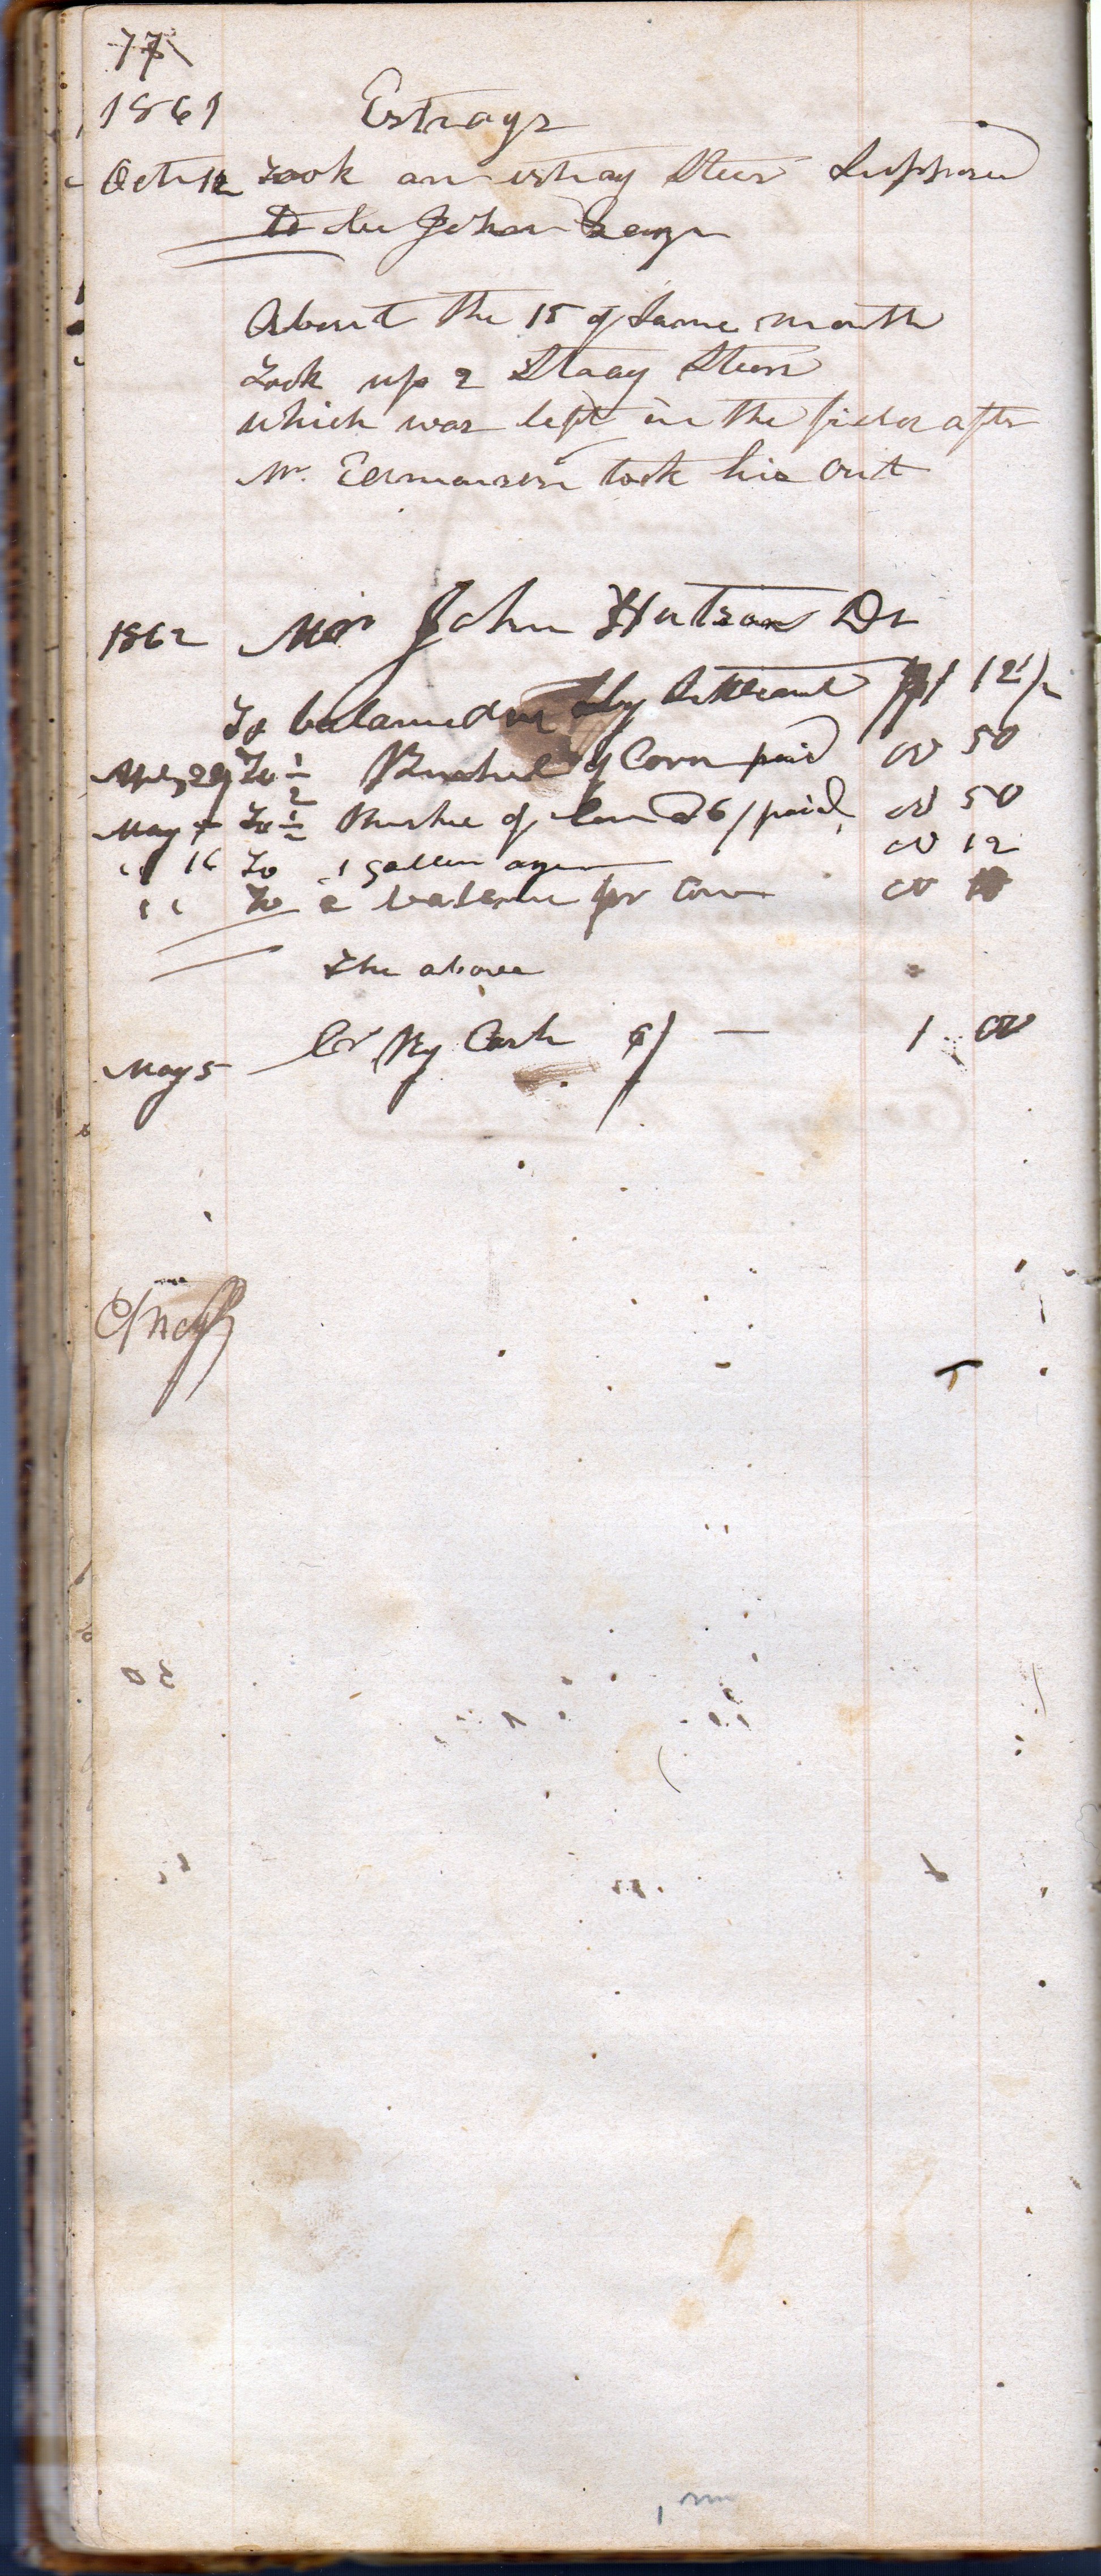 77
1861 Estrays
Octr 12 Took an estray Steer Suppose
to be John
About the 15 of Same month
Took up 2 Staay Steers
which was left in the field after
Mr. Edmonson took his out
1862 Mr John Hutson Dr
To balance due by Settlement 12½
Apl 29 To ½ Bushel of Corn paid 00 50
May To ½ Bushel of 6/ paid 00 50
" 16 To 1 gallon 00 12
" To a balance for Corn 00
The above
May 5 Cr By Cash 6/ — 1 00